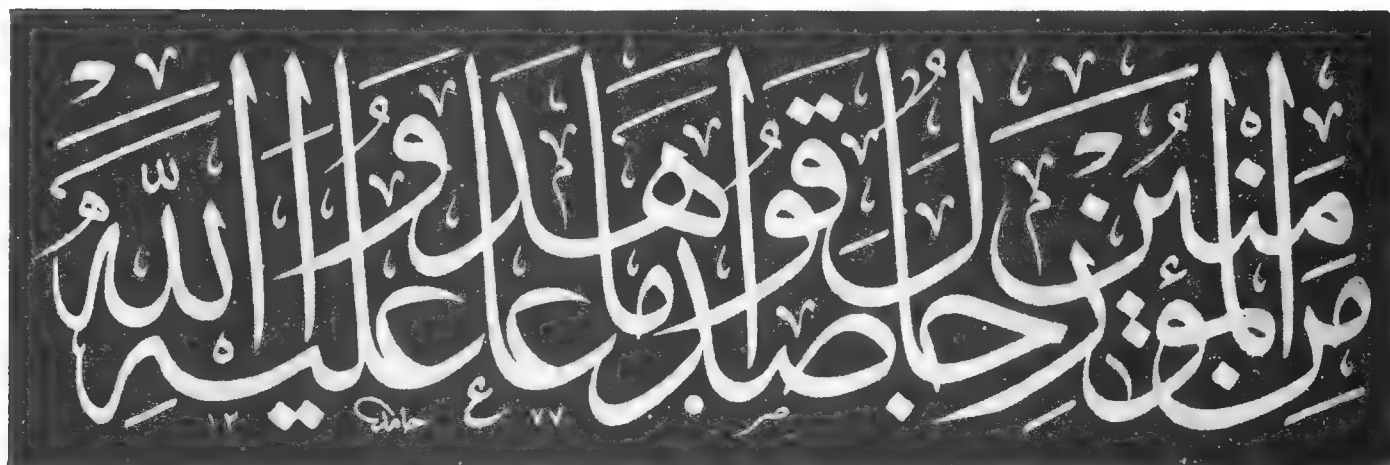 مِنَ الْمُؤْمِنِينَ رِجَالٌ صَدَقُوا مَا عَاهَدُوا اللَّهَ عَلَيْهِ
حامد